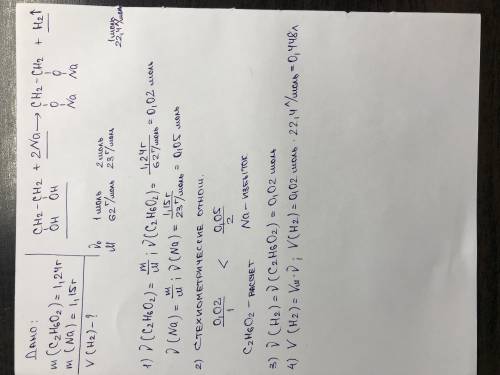 Дано:
m (C2H6O2) = 1,24г
m (Na) = 1,15г
V (H2) - ?
CH2 - CH2 + 2Na ⟶ CH2 - CH2 + H2↑
OH OH O O
Na Na
ν0 1 моль 2 моль 1 моль
M 62 г/моль 23 г/моль 22,4 л/моль
1) ν (C2H6O2) = m/M ; ν (C2H6O2) = 1,24г / 62 г/моль = 0,02 моль
ν (Na) = m/M ; ν (Na) = 1,15г / 23 г/моль = 0,05 моль
2) Стехиометрические отнош.
0,02/1 < 0,05/2
C2H6O2 - рассчет Na - избыток
3) ν (H2) = ν (C2H6O2) = 0,02 моль
4) V (H2) = Vм · ν ; V (H2) = 0,02 моль · 22,4 л/моль = 0,448л